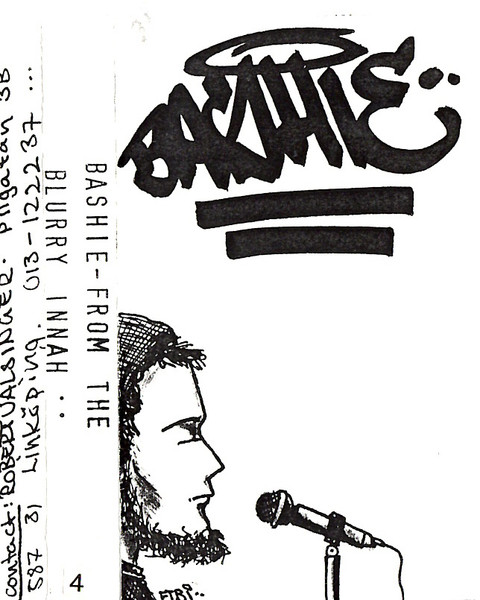 BASHIE..
BASHIE-FROM THE
BLURRY INNAH ..
contact: ROBERT VALSINGER. Pilgatan 3B
587 31 Linköping. 013-122237 ...
4